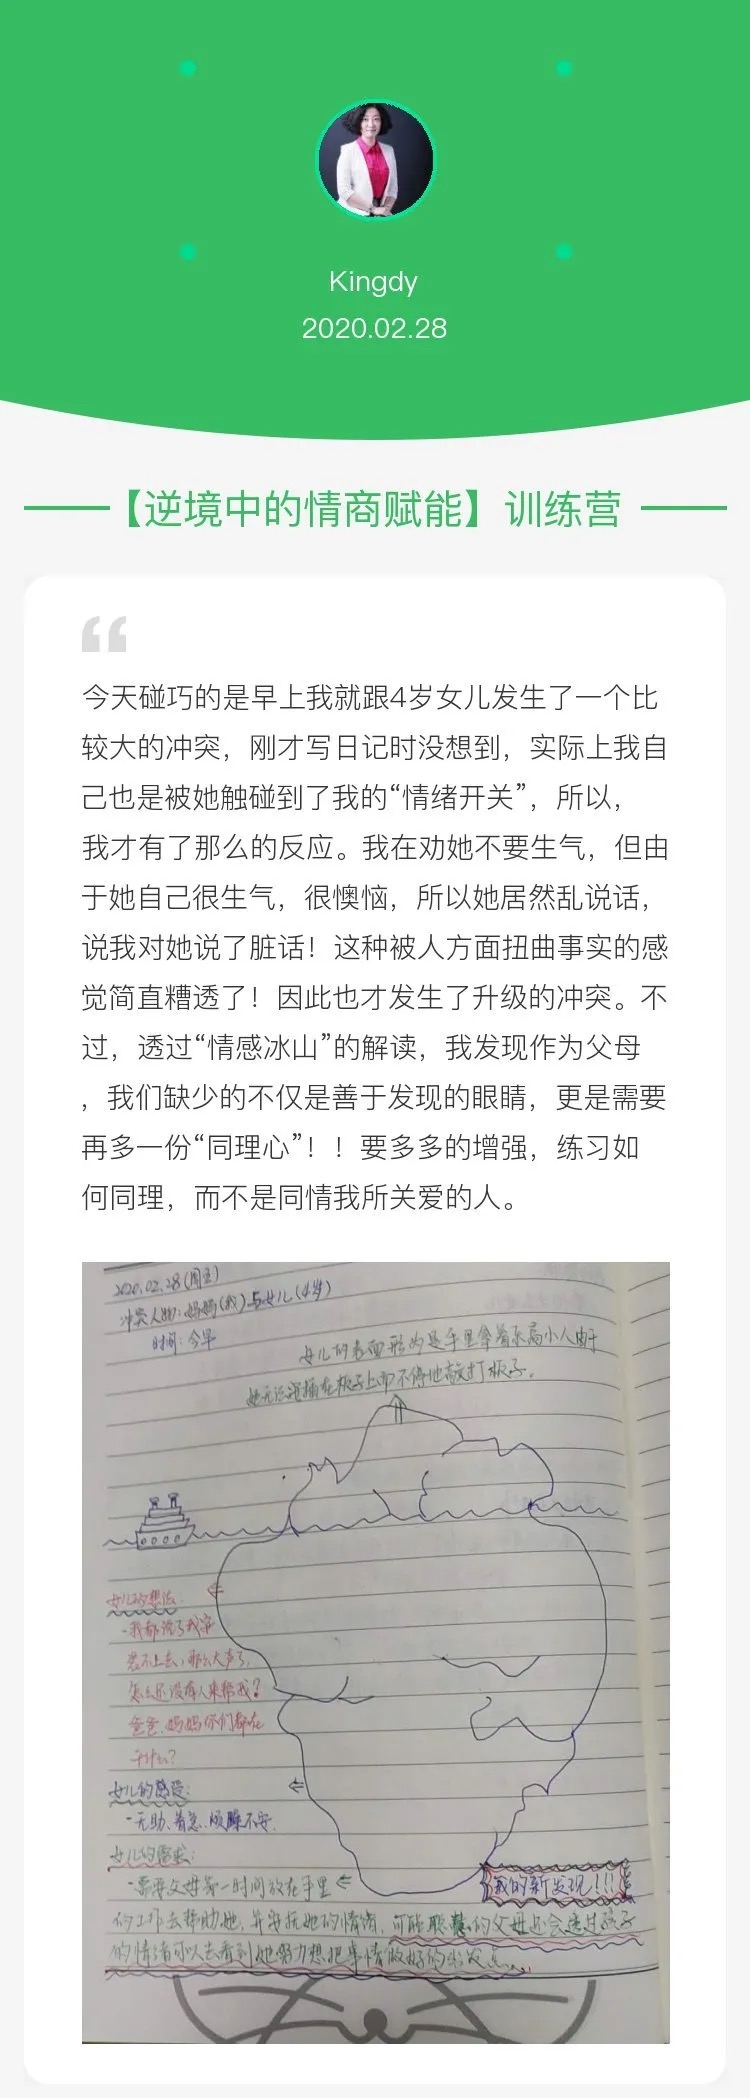 Kingdy
2020.02.28
【逆境中的情商赋能】训练营
今天碰巧的是早上我就跟4岁女儿发生了一个比
较大的冲突，刚才写日记时没想到，实际上我自
己也是被她触碰到了我的“情绪开关”，所以，
我才有了那么的反应。我在劝她不要生气，但由
于她自己很生气，很懊恼，所以她居然乱说话，
说我对她说了脏话！这种被人方面扭曲事实的感
觉简直糟透了！因此也才发生了升级的冲突。不
过，透过“情感冰山”的解读，我发现作为父母
，我们缺少的不仅是善于发现的眼睛，更是需要
再多一份“同理心”！！要多多的增强，练习如
何同理，而不是同情我所关爱的人。
2020.02.28(周五)
冲突人物:妈妈(我)与女儿(4岁)
时间:今早
女儿的表面行为是手里拿着乐高小人由于
她无法插在板子上而不停地敲打板子.
女儿的想法
-我都说了我穿
装不上去,那么大声了,
怎么还没有人来帮我?
爸爸、妈妈你们都在
干什么?
女儿的感受:
-无助、着急、烦躁不安.
女儿的需求:
-需要父母第一时间放在手里
我的新发现!!!
的工作去帮助她,并安抚她的情绪,可能聪慧的父母还会透过孩子
的情绪可以去看到她努力想把事情做好的出发点